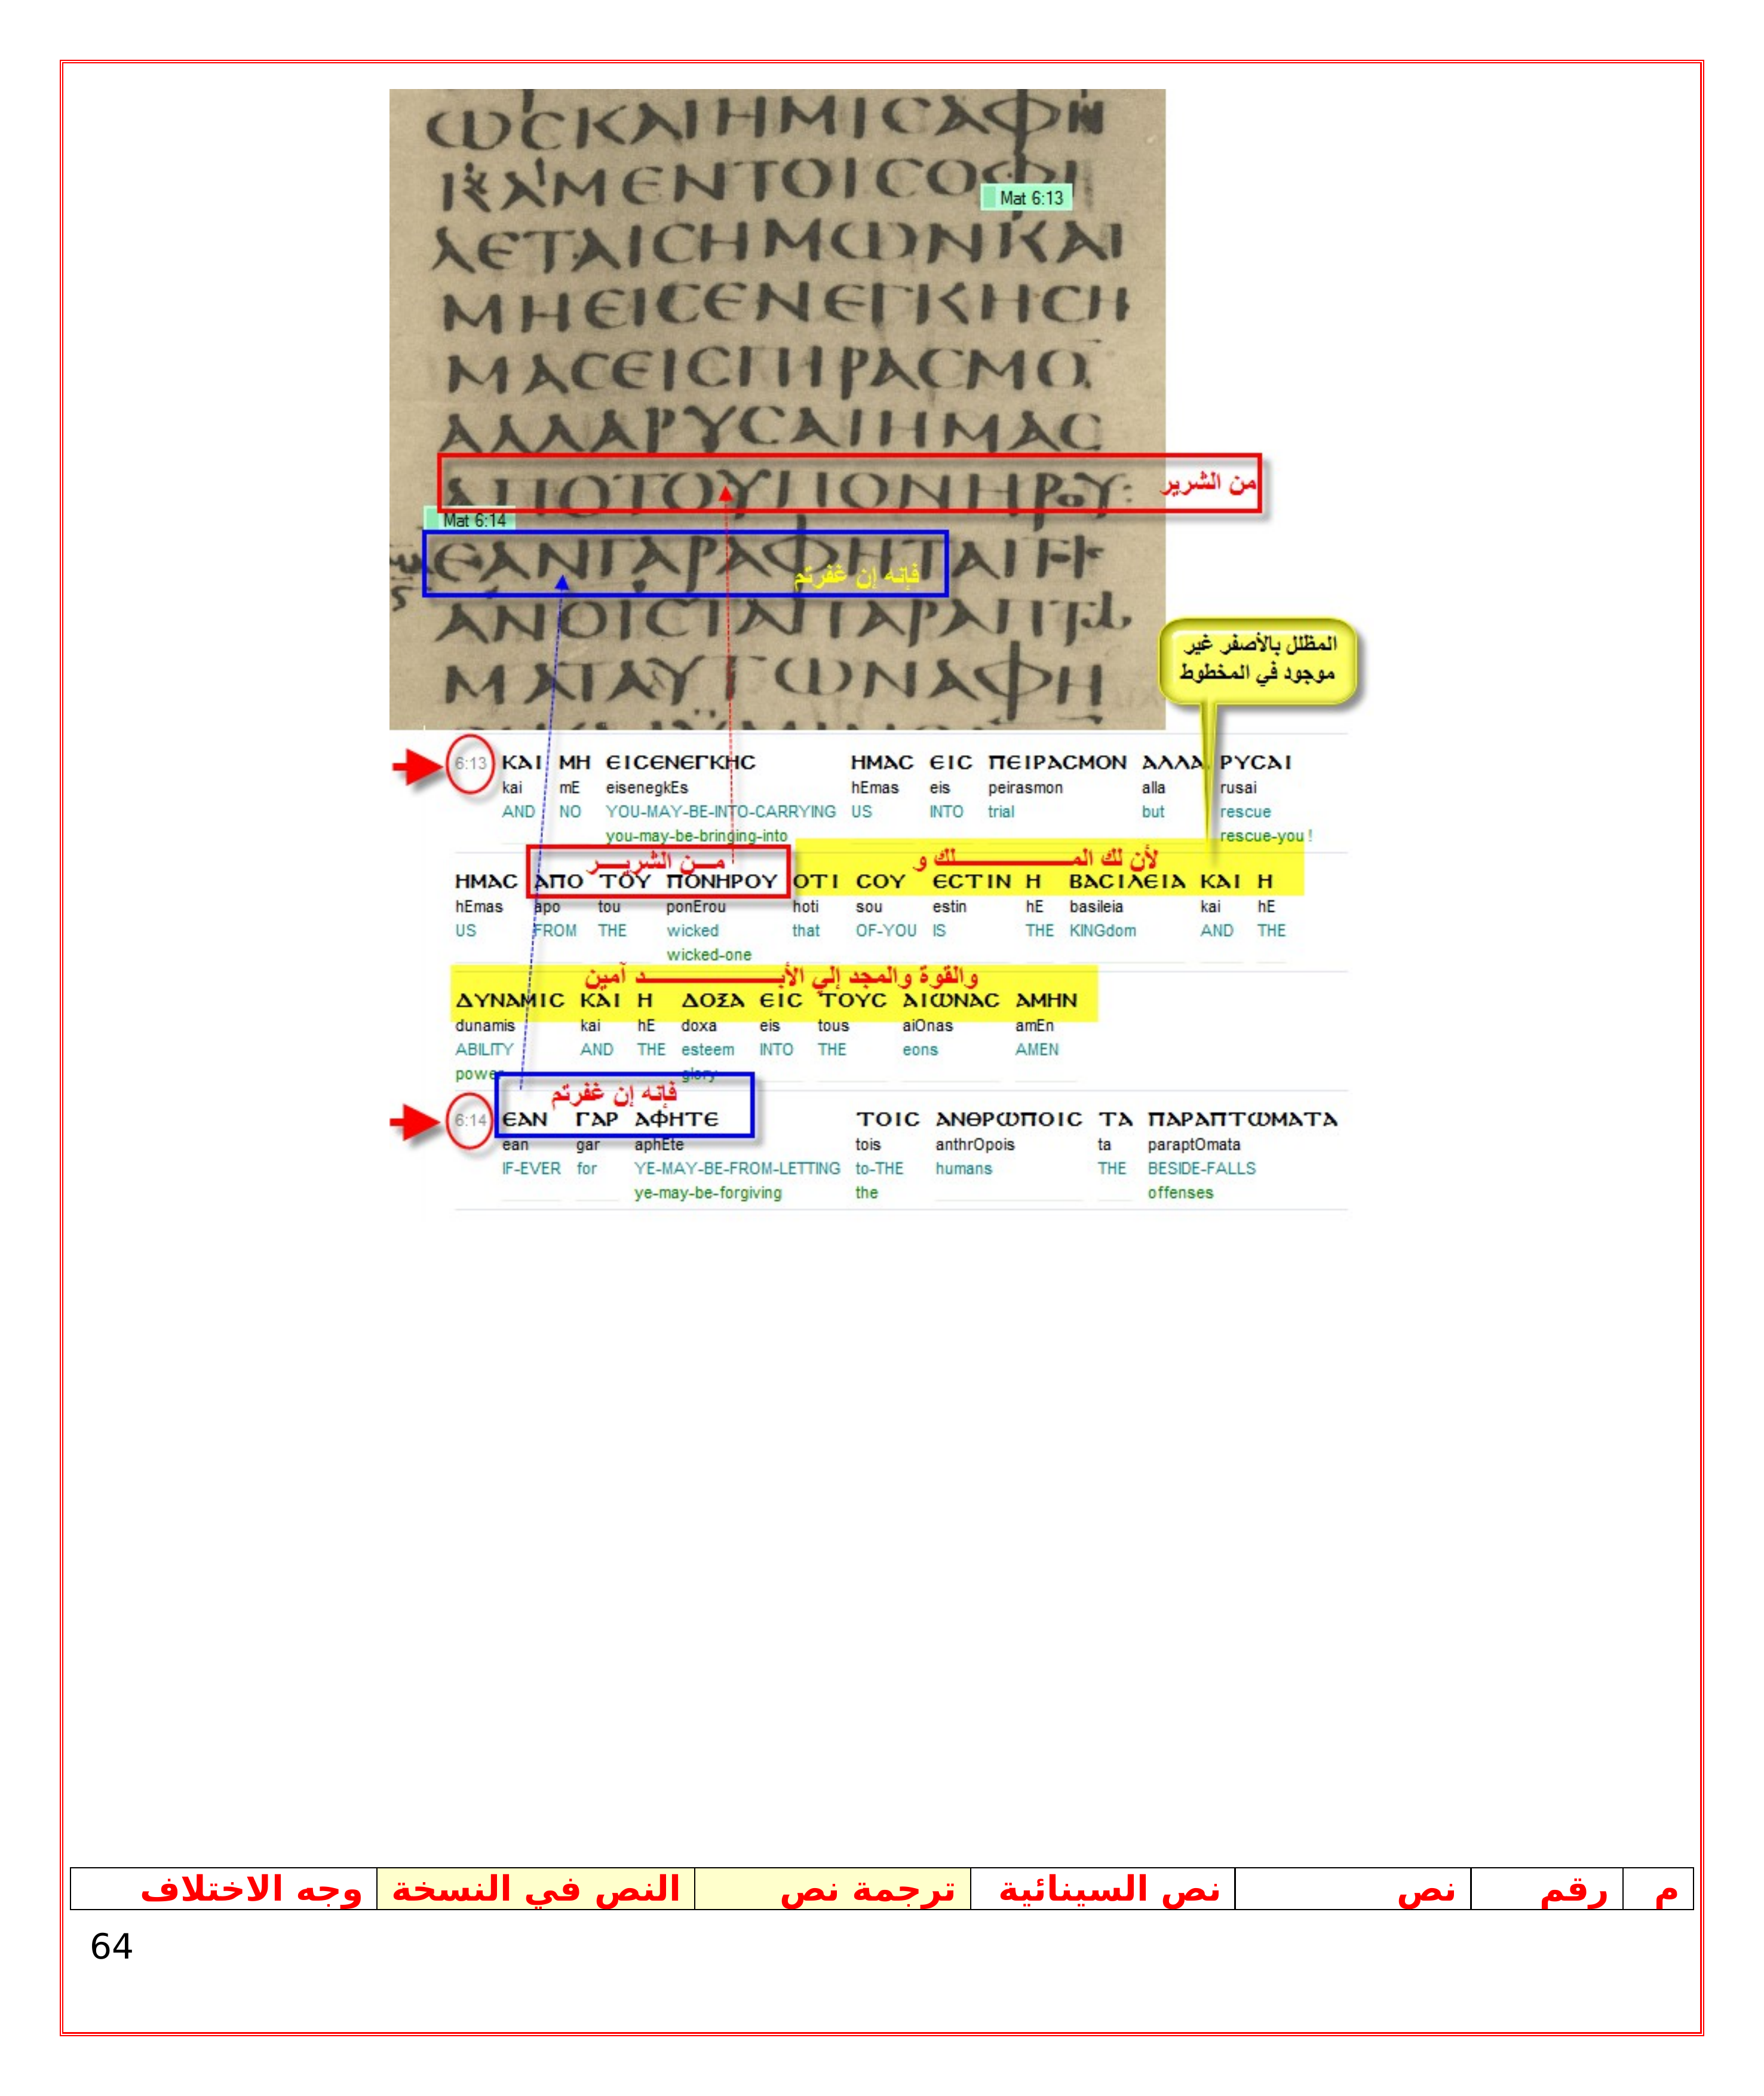 ωϲκαιημιϲαφη
καμεντοιϲοφι
Mat 6:13
λεταιϲημωνκαι
μηειϲενεγκηϲη
μαϲειϲπιραϲμο
αλλαρυϲαιημαϲ
αποτουπονηρου:
من الشرير
Mat 6:14
εανγαραφηται
فإنه إن غفرتم
ανοιϲταπαραπτω
ματααυτωναφη
المظلل بالأصفر غير
موجود في المخطوط
6:13 ΚΑΙ ΜΗ ΕΙϹΕΝΕΓΚΗϹ ΗΜΑϹ ΕΙϹ ΠΕΙΡΑϹΜΟΝ ΑΛΛΑ ΡΥϹΑΙ
kai mE eisenegkEs hEmas eis peirasmon alla rusai
AND NO YOU-MAY-BE-INTO-CARRYING US INTO trial but rescue
you-may-be-bringing-into rescue-you !
مــن الشريــــر لأن لك المــــــــــــلك و
ΗΜΑϹ ΑΠΟ ΤΟΥ ΠΟΝΗΡΟΥ ΟΤΙ ϹΟΥ ΕϹΤΙΝ Η ΒΑϹΙΛΕΙΑ ΚΑΙ Η
hEmas apo tou ponErou hoti sou estin hE basileia kai hE
US FROM THE wicked that OF-YOU IS THE KINGdom AND THE
wicked-one
والقوة والمجد إلي الأبــــــــــــد آمين
ΔΥΝΑΜΙϹ ΚΑΙ Η ΔΟΞΑ ΕΙϹ ΤΟΥϹ ΑΙΩΝΑϹ ΑΜΗΝ
dunamis kai hE doxa eis tous aiOnas amEn
ABILITY AND THE esteem INTO THE eons AMEN
power glory
فإنه إن غفرتم
6:14 ΕΑΝ ΓΑΡ ΑΦΗΤΕ ΤΟΙϹ ΑΝΘΡΩΠΟΙϹ ΤΑ ΠΑΡΑΠΤΩΜΑΤΑ
ean gar aphEte tois anthrOpois ta paraptOmata
IF-EVER for YE-MAY-BE-FROM-LETTING to-THE humans THE BESIDE-FALLS
ye-may-be-forgiving the offenses
م رقم نص نص السينائية ترجمة نص النص في النسخة وجه الاختلاف
64